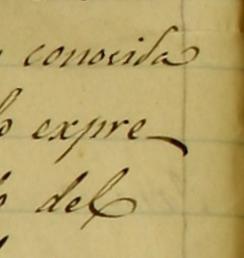 conocida
expre-
del